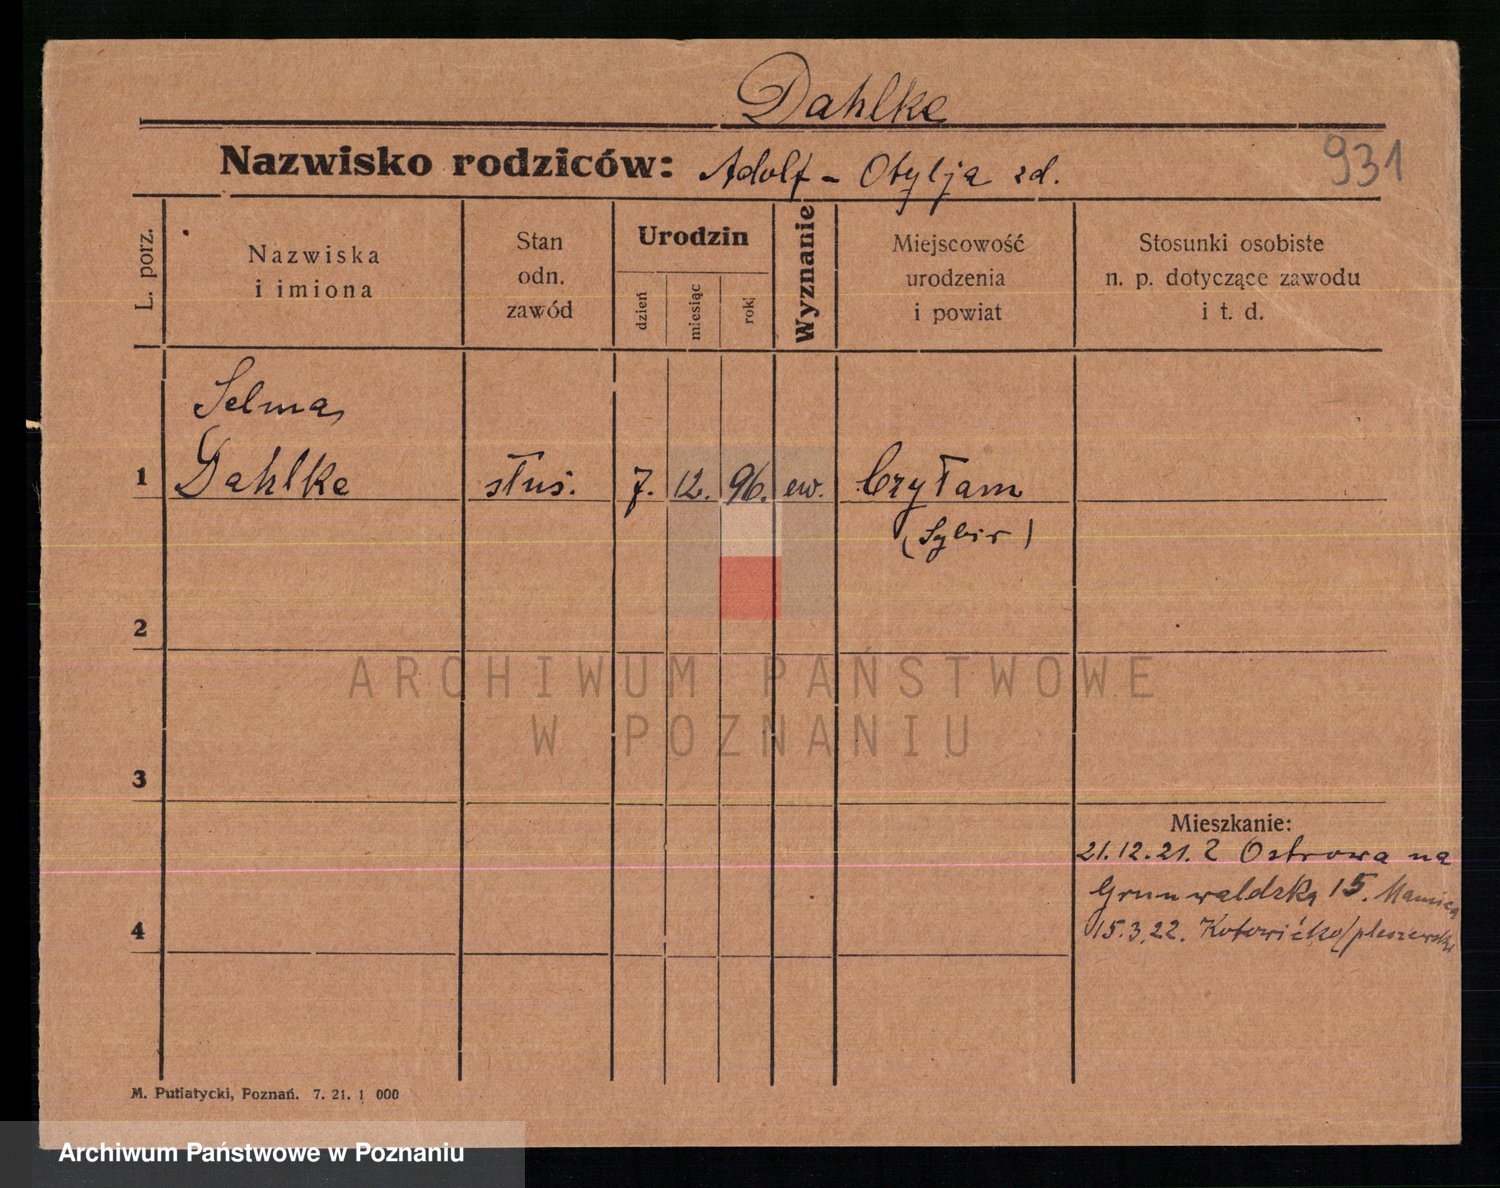 Dahlke
Nazwisko rodziców: Adolf - Otylja zd.
931
L. porz.
Nazwiska
i imiona
Stan
odn.
zawód
Urodzin
dzień
miesiąc
rok
Wyznanie
Miejscowość
urodzenia
i powiat
Stosunki osobiste
n. p. dotyczące zawodu
i t. d.
Selma
1 Dahlke służ. 7. 12. 96. ew.
(Sybir)
2
ARCHIWUM PAŃSTWOWE
W POZNANIU
3
Mieszkanie:
21.12.21. Z Ostrowa na
Grunwaldzką 15.
4 15.3.22.
M. Putiatycki, Poznań. 7. 21. 1 000
Archiwum Państwowe w Poznaniu